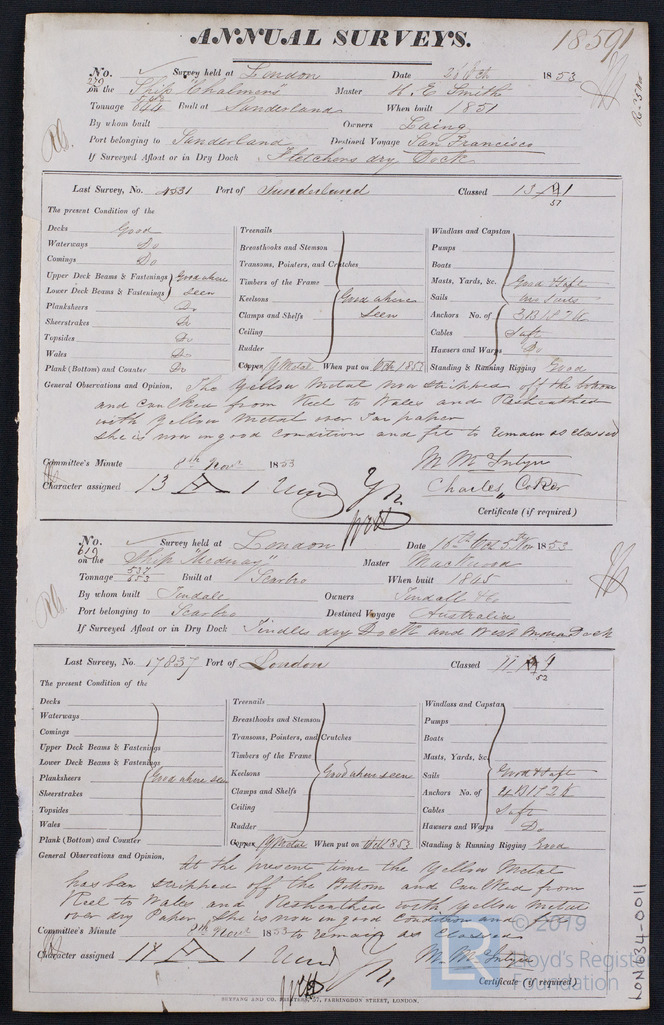 ANNUAL SURVEYS.
18591
No. Survey held at London Date 1853
on the Ship "Chalmers" Master H. E. Smith
Tonnage 544 Built at Sunderland When built 1851
By whom built Owners Laing
Port belonging to Sunderland Destined Voyage San Francisco
If Surveyed Afloat or in Dry Dock Fletchers dry Dock
Last Survey, No. 4531 Port of Sunderland Classed 13 A 1
51
The present Condition of the
Decks Good
Waterways Do
Comings Do
Upper Deck Beams & Fastenings Good where
Lower Deck Beams & Fastenings seen
Planksheers Do
Sheerstrakes Do
Topsides Do
Wales Do
Plank (Bottom) and Counter Do
Treenails
Breasthooks and Stemson
Transoms, Pointers, and Crutches
Timbers of the Frame
Keelsons Good where
Clamps and Shelfs seen
Ceiling
Rudder
Copper Y Metal When put on Octr 1853
Windlass and Capstan
Pumps
Boats
Masts, Yards, &c. Good & Safe
Sails
Anchors No. of 3B 1S 2K
Cables Safe
Hawsers and Warps Do
Standing & Running Rigging Good
General Observations and Opinion, The Yellow Metal now stripped off the bottom
and Caulked from Keel to Wales and Resheathed
with Yellow Metal over Tar paper
She is now in good Condition and fit to remain as classed
Committee's Minute 8th Novr 1853 M McIntyre
Character assigned 13 A 1 Charles Coker
Certificate (if required)
No. Survey held at London Date 16th Oct 5th Nov 1853
619
on the Ship "Medway" Master Mackwood
Tonnage 537/653 Built at Scarbro When built 1845
By whom built Tindale Owners Tindall & Co
Port belonging to Scarbro Destined Voyage Australia
If Surveyed Afloat or in Dry Dock Tindles dry Dock and West India Dock
Last Survey, No. 17837 Port of London Classed 11 A 1
52
The present Condition of the
Decks
Waterways
Comings
Upper Deck Beams & Fastenings
Lower Deck Beams & Fastenings
Planksheers Good where seen
Sheerstrakes
Topsides
Wales
Plank (Bottom) and Counter
Treenails
Breasthooks and Stemson
Transoms, Pointers, and Crutches
Timbers of the Frame
Keelsons Good where seen
Clamps and Shelfs
Ceiling
Rudder
Copper Y Metal When put on Octr 1853
Windlass and Capstan
Pumps
Boats
Masts, Yards, &c.
Sails Good & Safe
Anchors No. of 4B 1S 2K
Cables Safe
Hawsers and Warps Do
Standing & Running Rigging Good
General Observations and Opinion, At the present time the Yellow Metal
has been stripped off the Bottom and Caulked from
Keel to Wales and Resheathed with Yellow Metal
over dry Paper She is now in good Condition and fit
Committee's Minute 8th Novr 1853 to remain as Classed
Character assigned A 1 M McIntyre
Certificate (if required)
SEYFANG AND CO. PRINTERS, 57, FARRINGDON STREET, LONDON.
LON634-0011
© 2019
Lloyd's Register
Foundation
LR